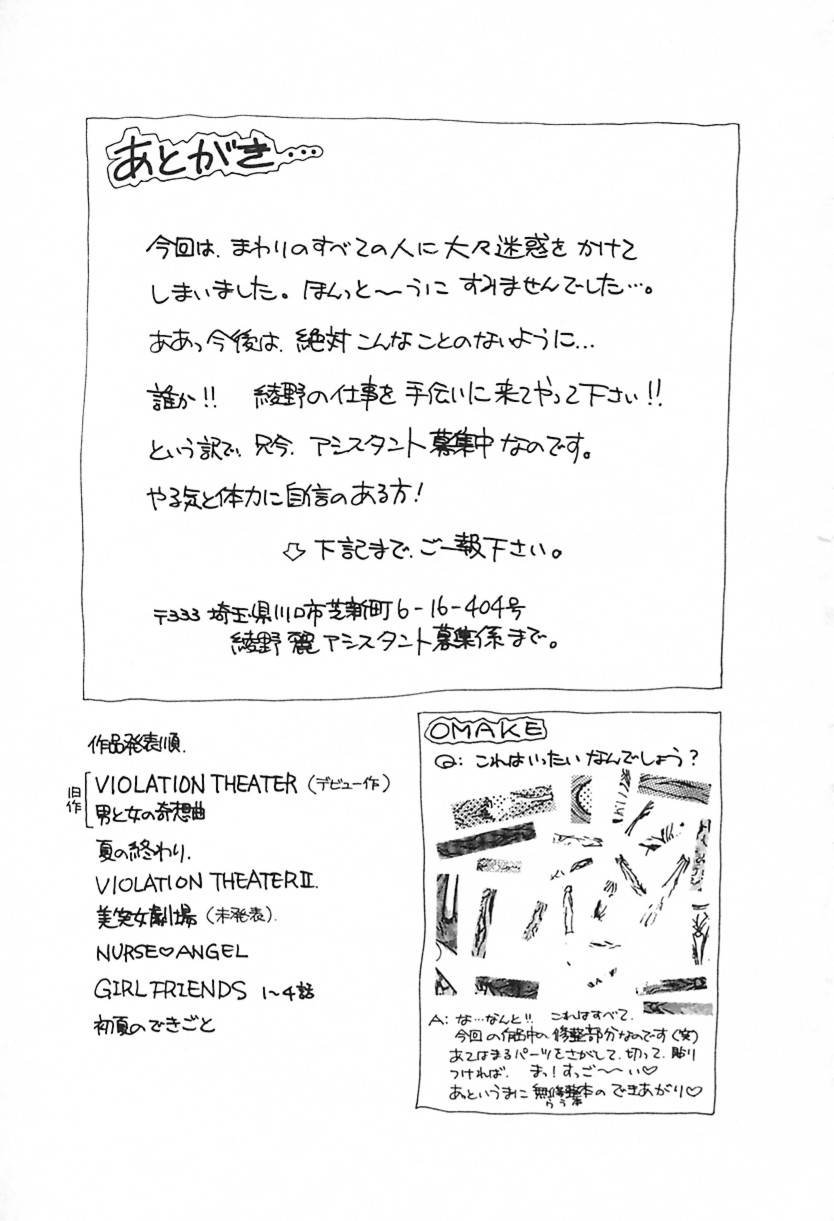 あとがき…
今回は、まわりのすべての人に大々迷惑をかけて
しまいました。ほんっと〜〜うに すみませんでした…。
ああっ今後は、絶対こんなことのないように…
誰か!! 綾野の仕事を手伝いに来てやって下さい!!
という訳で、只今、アシスタント募集中なのです。
やる気と体力に自信のある方!
⇩下記まで、ご一報下さい。
〒333 埼玉県川口市芝新町6-16-404号
綾野 麗 アシスタント募集係まで。
作品発表順、
旧作
VIOLATION THEATER (デビュー作)
男と女の奇想曲
夏の終わり、
VIOLATION THEATERⅡ.
美実女劇場 (未発表)
NURSE♡ANGEL
GIRL FRIENDS 1〜4話
初夏のできごと
OMAKE
Q: これはいったいなんでしょう?
A: な…なんと!! これはすべて、
今回の作品中の修整部分なのです(笑)
あてはまるパーツをさがして、切って、貼り
つければ、まっ!すっご〜〜い♡
あっというまに 無修整本の できあがり♡
らう本